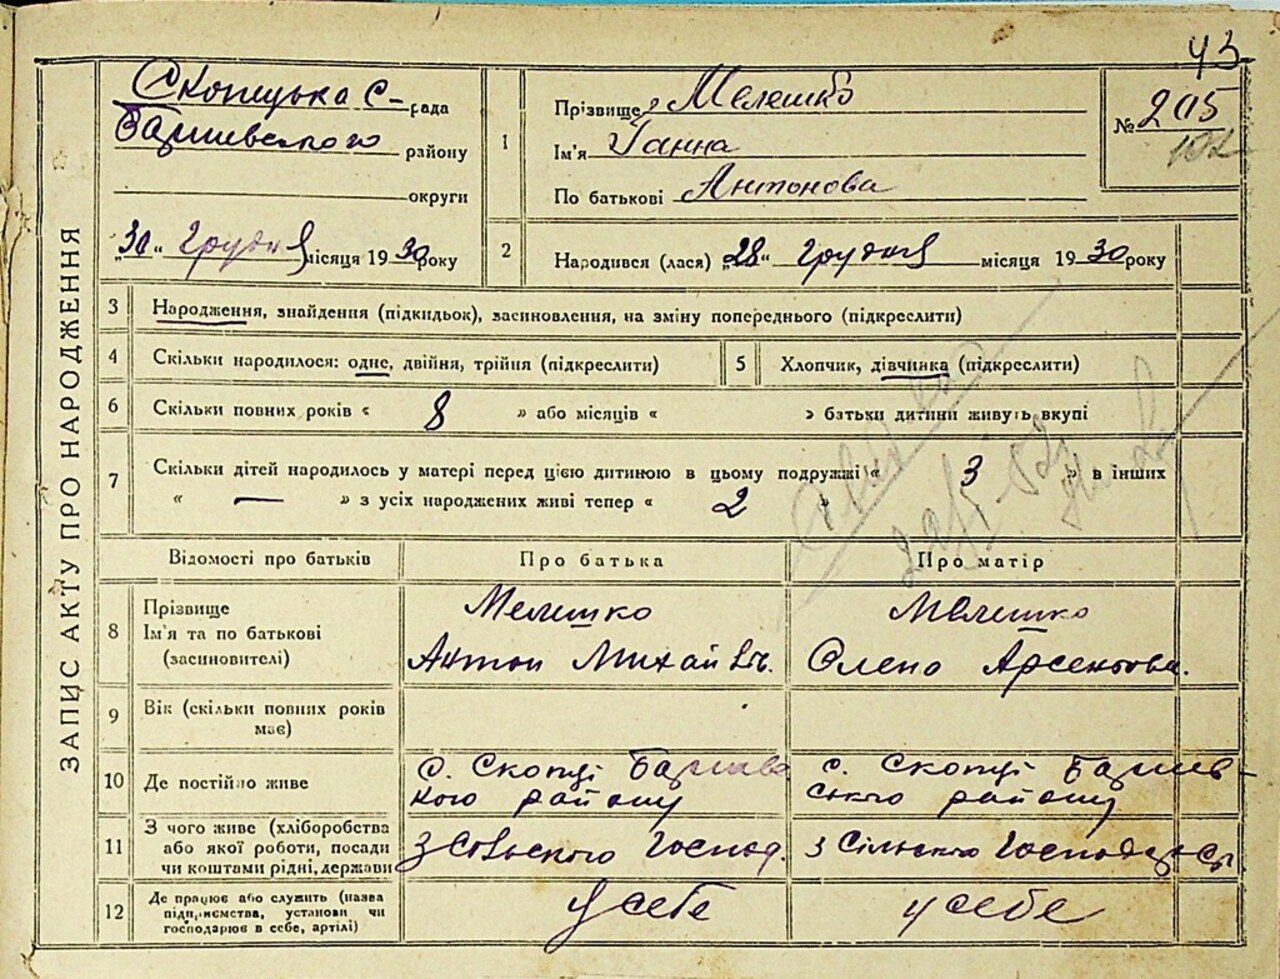 43
Скопецька с-рада
Баришевского району
округи
„30“ Грудня місяця 1930 року
1
Прізвище Мелешко
Ім'я Ганна
По батькові Антонова
№ 205
102
2
Народився (лася) „28“ грудня місяця 1930 року
ЗАПИС АКТУ ПРО НАРОДЖЕННЯ
3 Народження, знайдення (підкидьок), засиновлення, на зміну попереднього (підкреслити)
4 Скільки народилося: одне, двійня, трійня (підкреслити)
5 Хлопчик, дівчинка (підкреслити)
6 Скільки повних років « 8 » або місяців « » батьки дитини живуть вкупі
7 Скільки дітей народилось у матері перед цією дитиною в цьому подружжі « 3 » в інших
« — » з усіх народжених живі тепер « 2 »
Відомості про батьків Про батька Про матір
8
Прізвище
Ім'я та по батькові
(засиновителі)
Мелешко
Антон Михайлів.
Мелешко
Олена Арсентова.
9
Вік (скільки повних років
має)
10 Де постійно живе
с. Скопці Баришев
кого району
с. Скопці Баришев-
ського району
11
З чого живе (хліборобства
або якої роботи, посади
чи коштами рідні, держави
З Сільського Господ.
з Сільского Господарс
12
Де працює або служить (назва
підприємства, установи чи
господарює в себе, артілі)
у себе
у себе